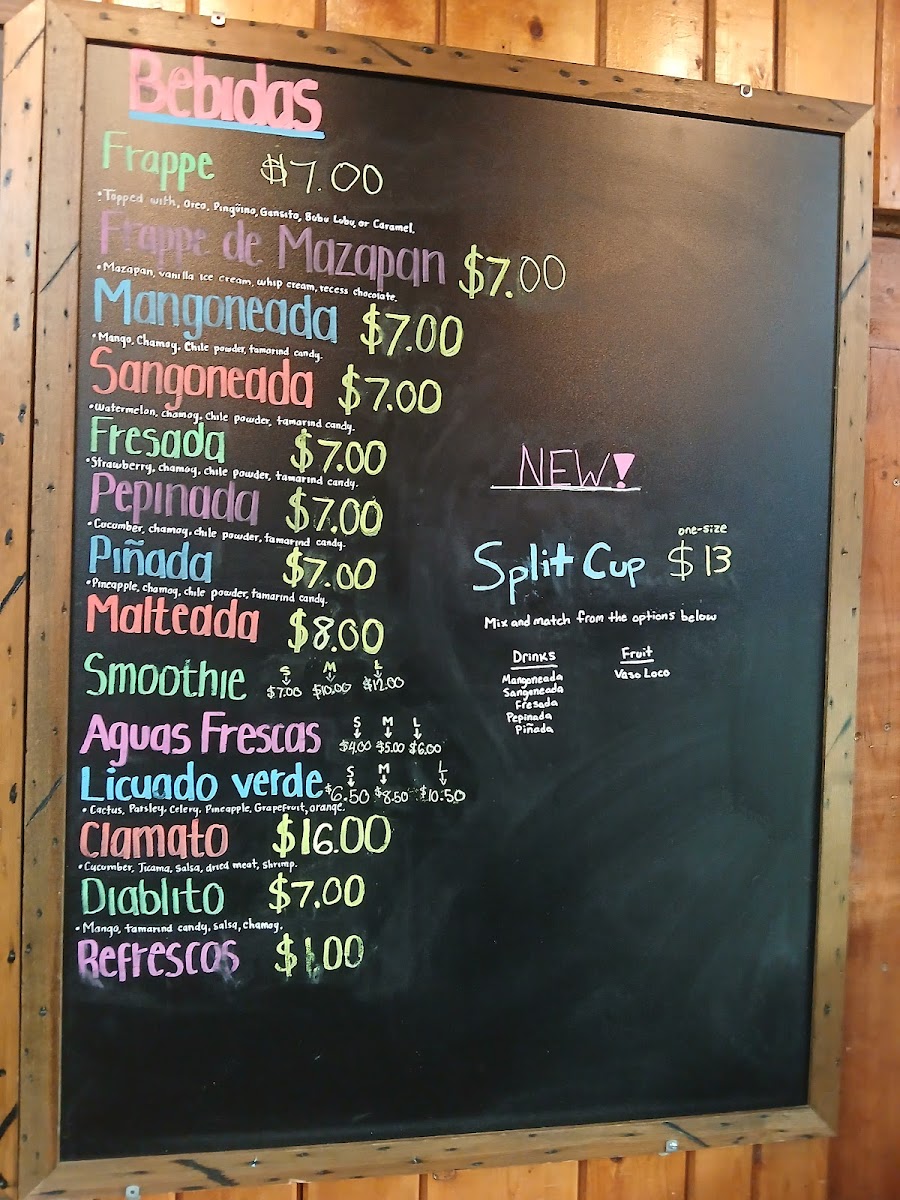 Bebidas
Frappe $7.00
•Topped with, Oreo, Pingüino, Gansito, Bubu Lobu, or Caramel.
Frappe de Mazapan $7.00
•Mazapan, vanilla ice cream, whip cream, recess chocolate.
Mangoneada $7.00
•Mango, Chamoy, Chile powder, tamarind candy.
Sangoneada $7.00
•Watermelon, chamoy, chile powder, tamarind candy.
Fresada $7.00
•Strawberry, chamoy, chile powder, tamarind candy.
Pepinada $7.00
•Cucumber, chamoy, chile powder, tamarind candy.
Piñada $7.00
•Pineapple, chamoy, chile powder, tamarind candy.
Malteada $8.00
S M L
Smoothie $7.00 $10.00 $12.00
S M L
Aguas Frescas $4.00 $5.00 $6.00
S M L
Licuado verde $6.50 $8.50 $10.50
• Cactus, Parsley, Celery, Pineapple, Grapefruit, orange.
Clamato $16.00
•Cucumber, Jicama, Salsa, dried meat, shrimp.
Diablito $7.00
• Mango, tamarind candy, salsa, chamoy.
Refrescos $1.00
NEW!
one-size
Split Cup $13
Mix and match from the options below
Drinks Fruit
Mangoneada Vaso Loco
Sangoneada
Fresada
Pepinada
Piñada